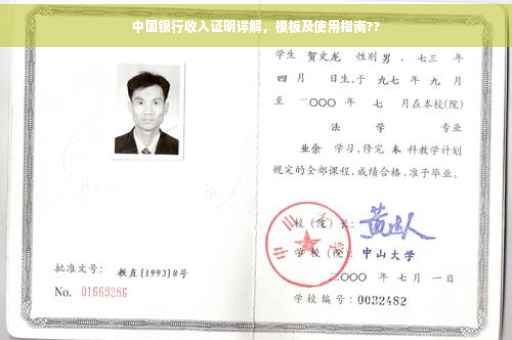 中国银行收入证明详解，模板及使用指南??
学生 贺文龙 性别 男 、七三 年
四 月 日生,于 九七 年 九 月
至 二〇〇〇 年 七 月在本校(院)
法 学 专业
业余 学习,修完 本 科教学计划
规定的全部课程,成绩合格,准予毕业。
校（院）长：
学 校（院）：中山大学
二〇〇〇 年 七 月 一 日
批准文号： 教直[1993]8号
No. 01669286
学校编号：0032482